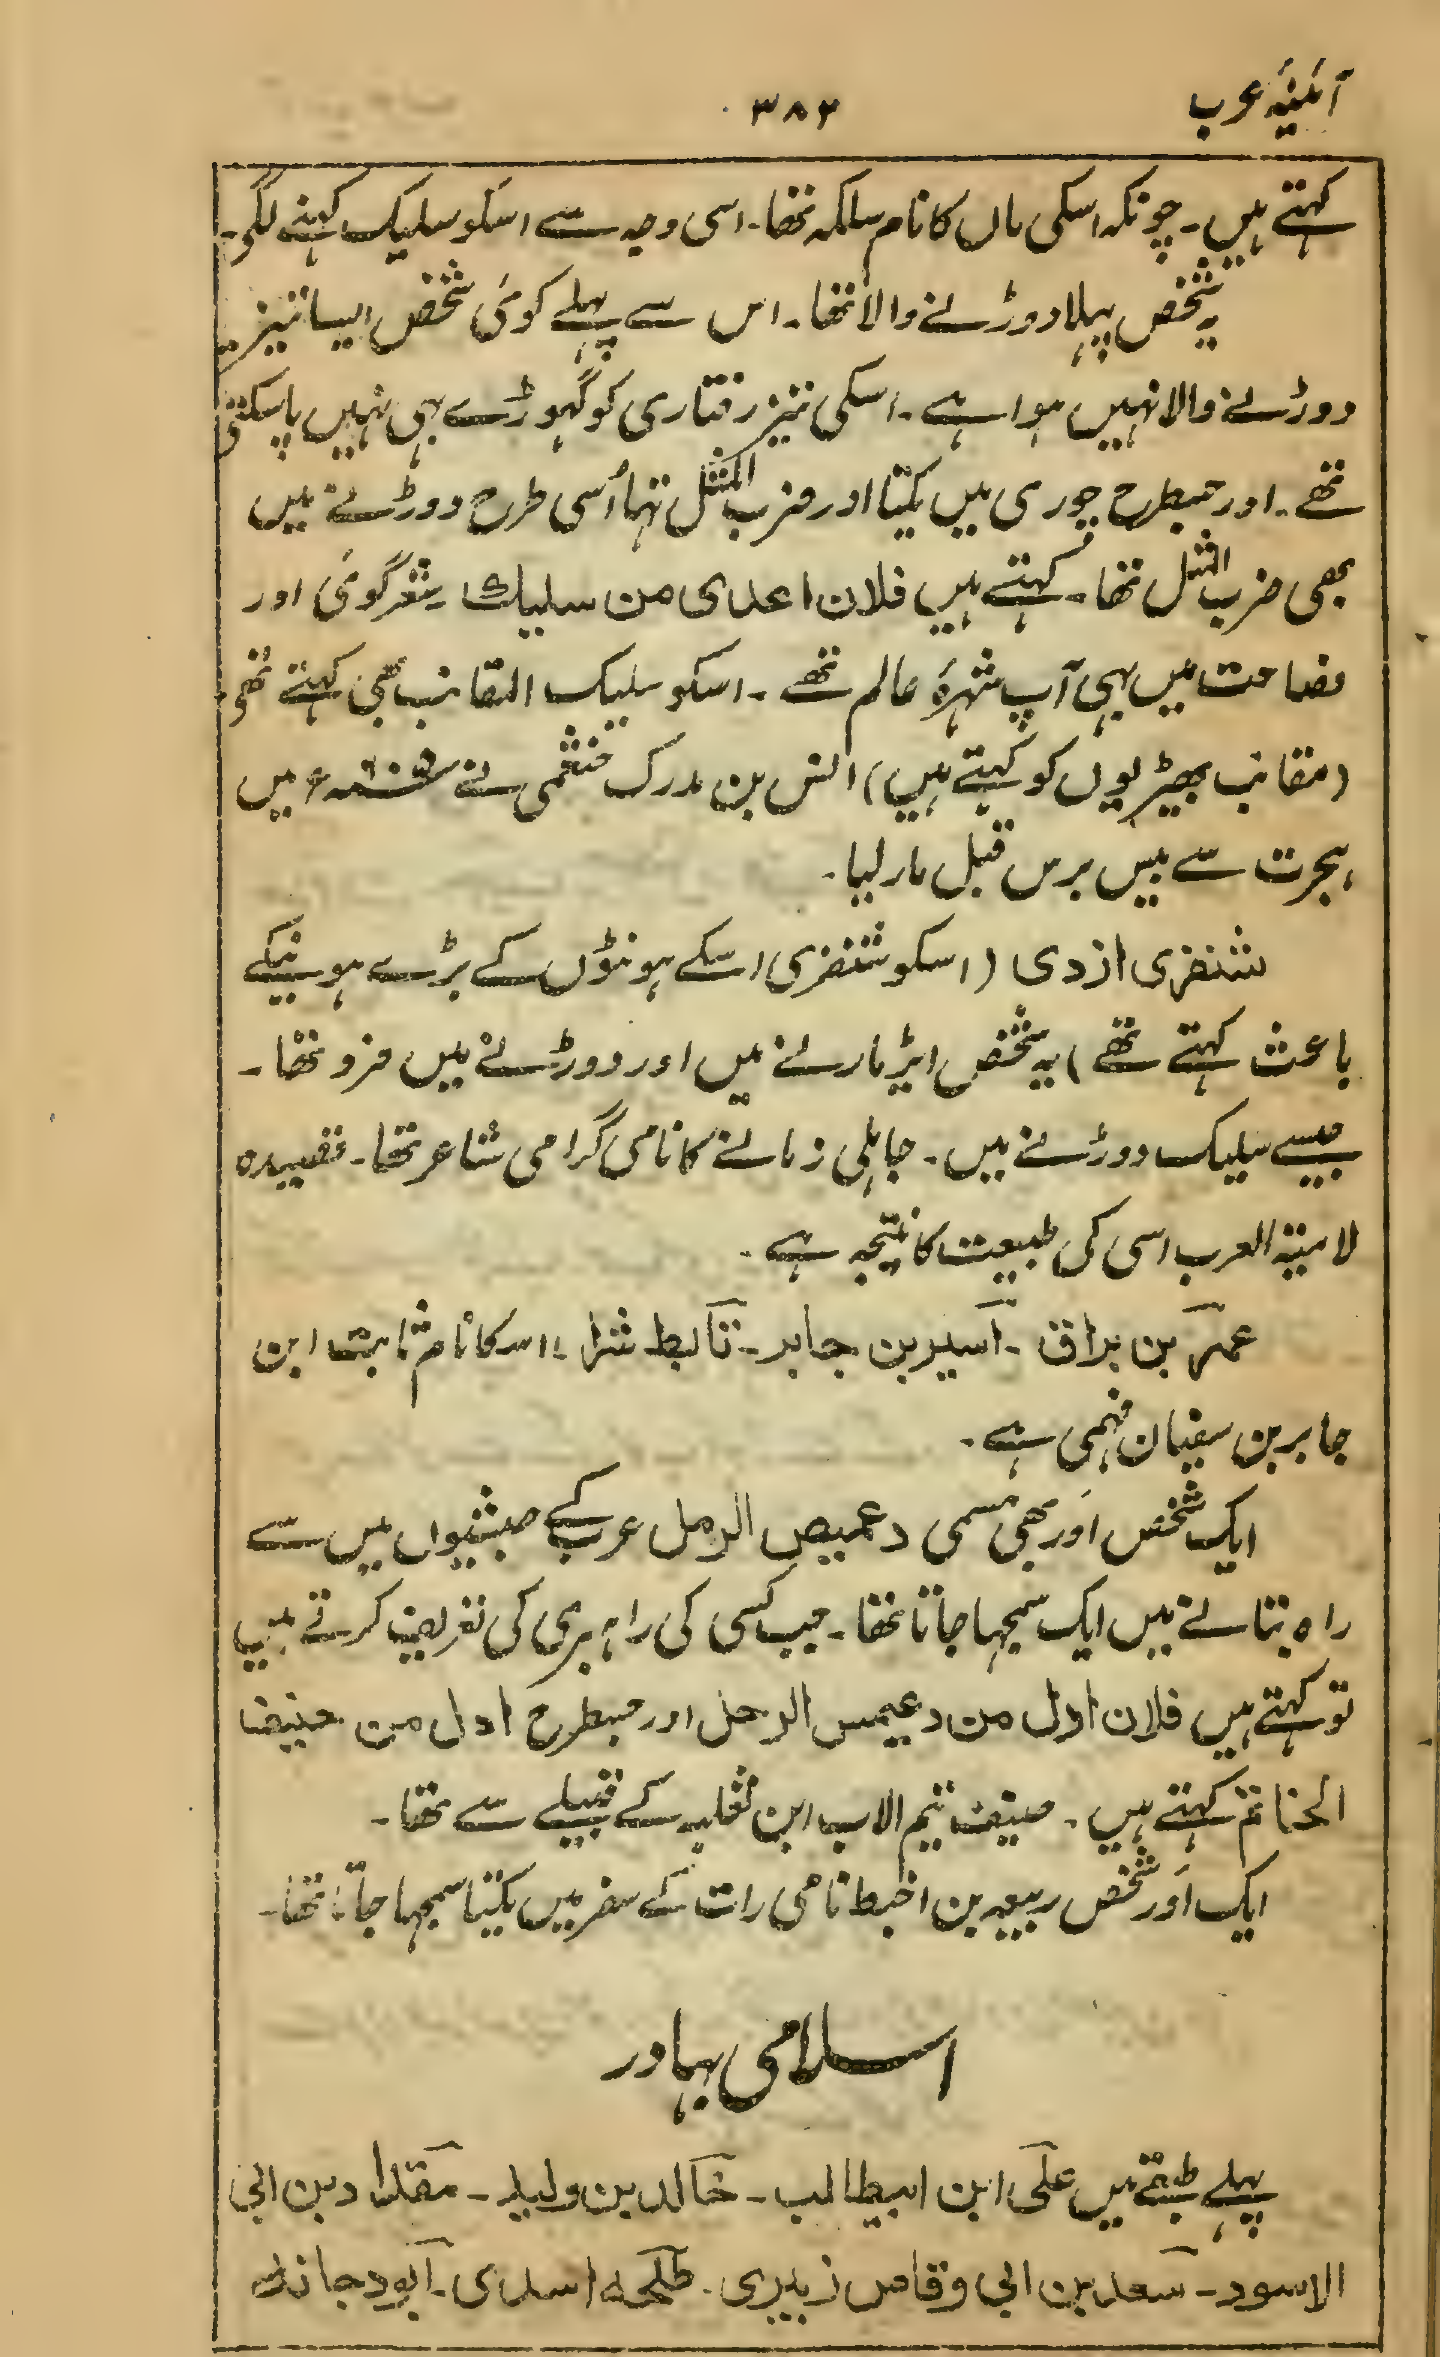 آئینۂ عرب
۳۸۲
کہتے ہیں۔ چونکہ اسکی ماں کا نام سلکہ تھا۔ اسی وجہ سے اسکو سلیک کہنے لگے۔
یہ شخص پہلا دوڑنے والا تھا۔ اس سے پہلے کوئی شخص ایسا تیز
دوڑنے والا نہیں ہوا ہے۔ اسکی تیز رفتاری کو گہوڑے بہی نہیں پا سکتے
تھے۔ اور جسطرح چوری میں یکتا اور ضرب المثل تہا اُسی طرح دوڑنے میں
بھی ضرب المثل تھا۔ کہتے ہیں فلان اعدی من سلیک شعر گوئی اور
فصاحت میں بہی آپ شہرۂ عالم تھے۔ اسکو سلیک المقانب بھی کہتے تھے
(مقانب بھیڑیوں کو کہتے ہیں) انس بن مدرک خثعمی نے میں
ہجرت سے بیس برس قبل مار لیا۔
شنفری ازدی (اسکو شنفری اسکے ہونٹوں کے بڑے ہونیکے
باعث کہتے تھے) یہ شخص ایڑ مارنے میں اور دوڑنے میں فرو تھا۔
جیسے سلیک دوڑنے میں۔ جاہلی زمانے کا نامی گرامی شاعر تھا۔ قصیدہ
لامیۃ العرب اسی کی طبیعت کا نتیجہ ہے۔
عمر بن براق۔ اسیر بن جابر۔ تأبط شرا۔ اسکا نام ثابت ابن
جابر بن سفیان فہمی ہے۔
ایک شخص اَور بھی مسمی دعمیص الرمل عرب کے حبشیوں میں سے
راہ بتانے میں ایک سمجہا جاتا تھا۔ جب کسی کی راہبری کی تعریف کرتے ہیں
تو کہتے ہیں فلان ادل من دعیمس الرحل اور جسطرح ادل من حنیف
الحناتم کہتے ہیں۔ حنیف تیم الاب ابن ثعلبہ کے قبیلے سے تھا۔
ایک اَور شخص ربیعہ بن اضبط نامی رات کے سفر میں یکتا سمجہا جاتا تھا۔
اسلامی بہادر
پہلے طبقے میں علی ابن ابیطالب۔ خالد بن ولید۔ مقداد بن ابی
الاسود۔ سعد بن ابی وقاص زبیری۔ طلحہ اسدی۔ ابودجانہ